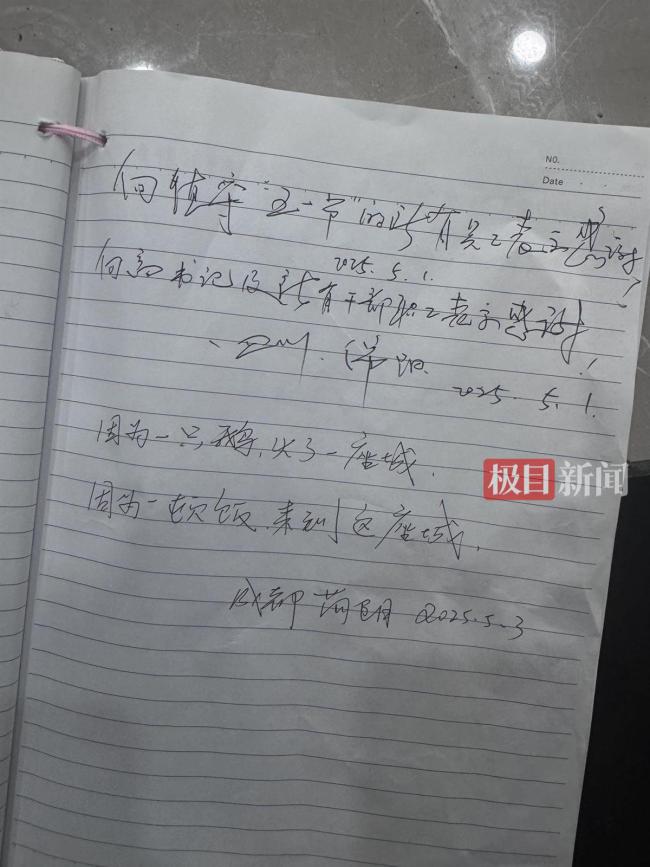 NO.
Date
向值守"五一节"的所有员工表示感谢!
2025.5.1.
向高书记及所有干部职工表示感谢!
四川. 2025.5.1.
因为一只鹅,火了一座城.
极目新闻
因为一顿饭,来到这座城.
成都 2025.5.3